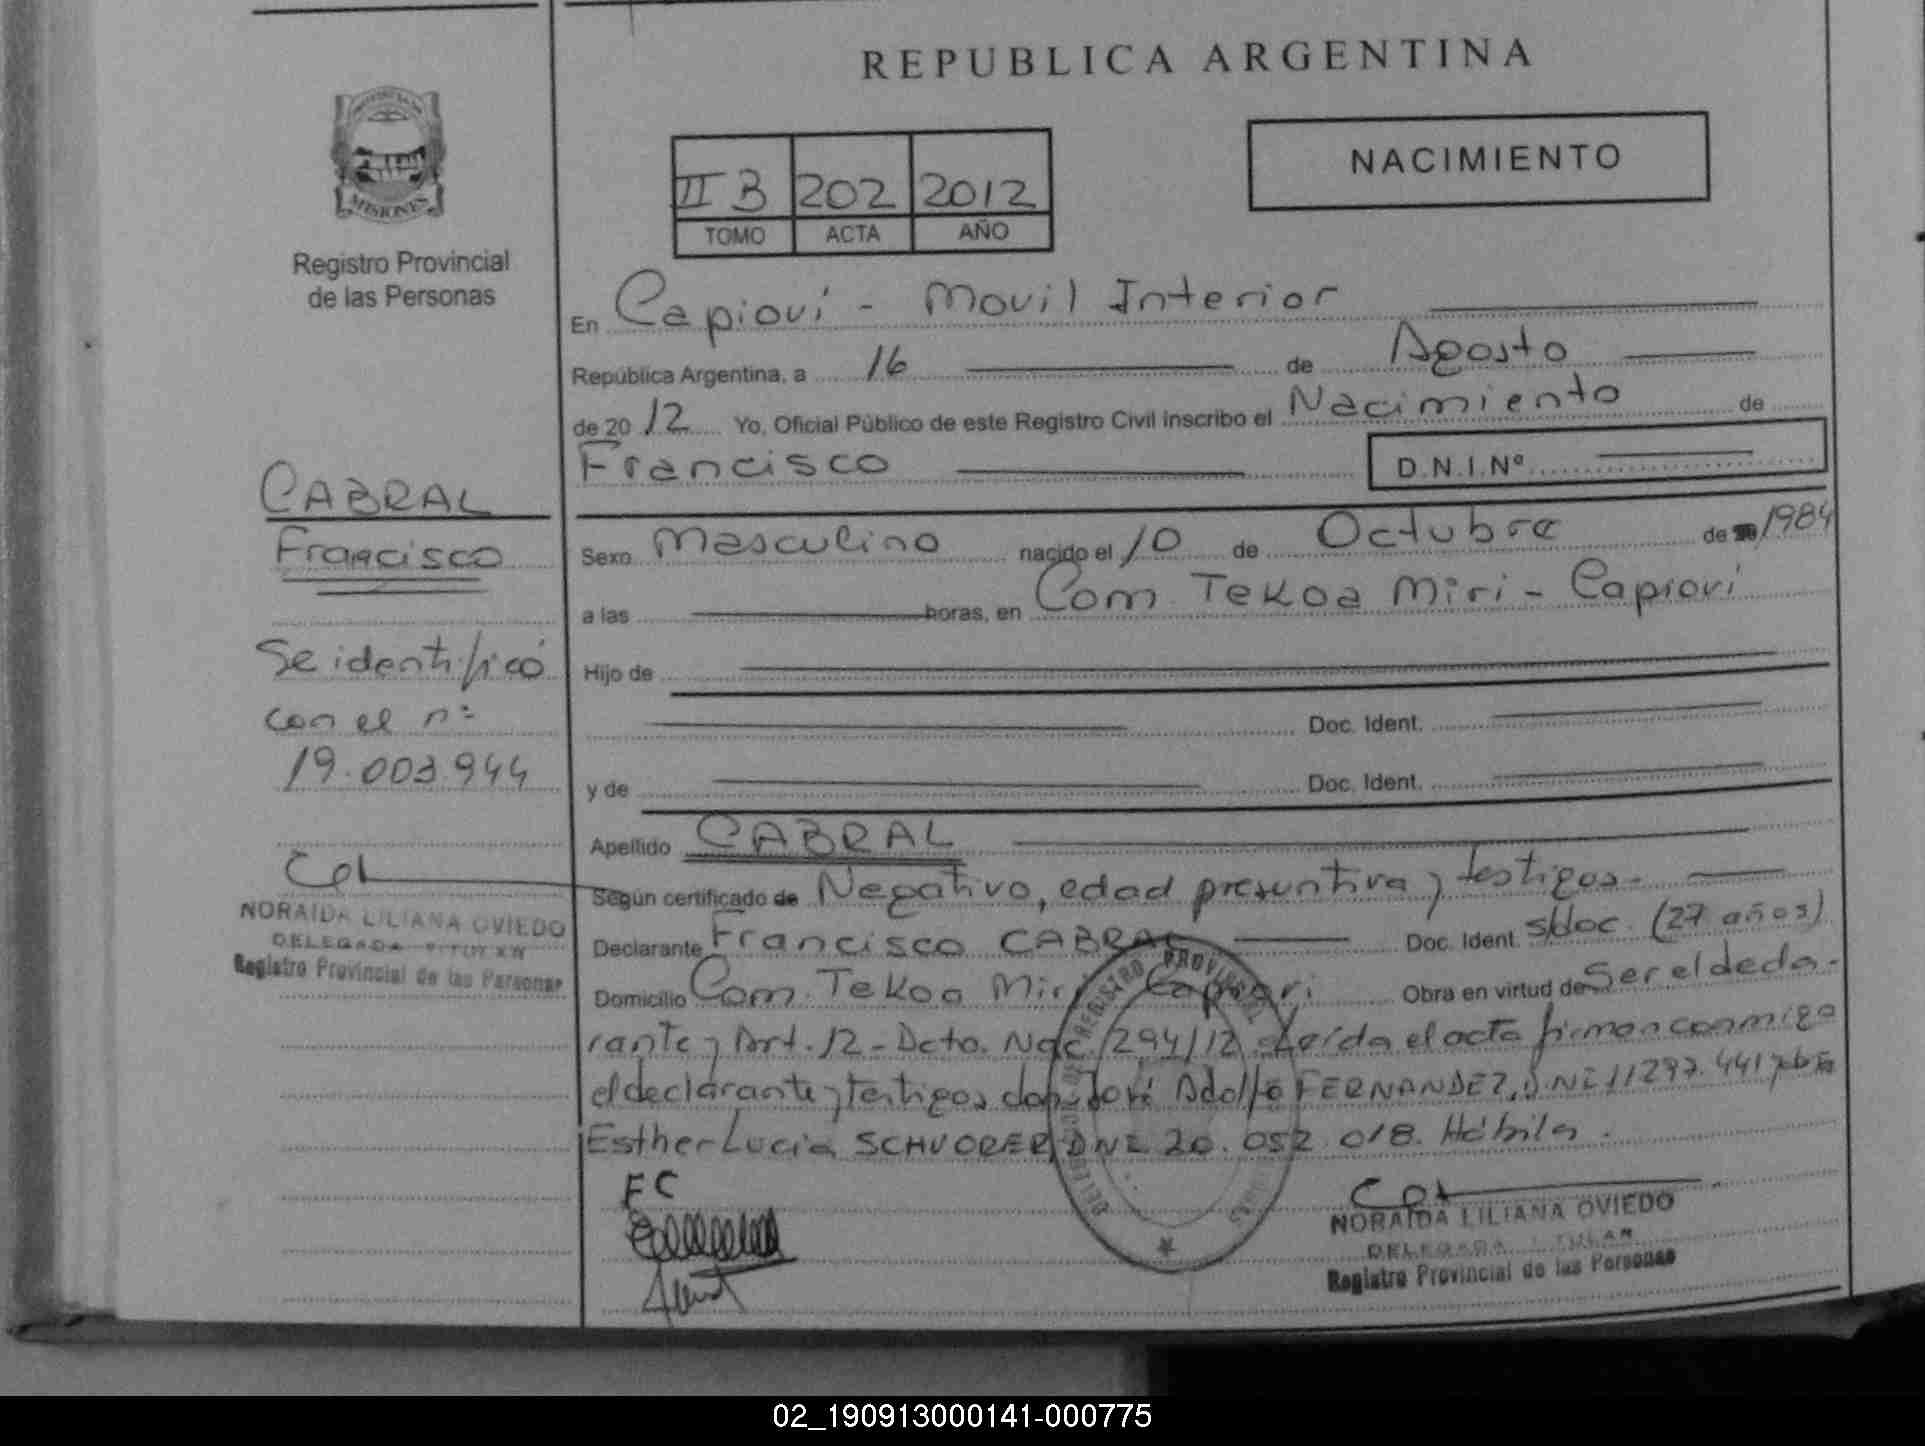 REPUBLICA ARGENTINA
MISIONES
Registro Provincial
de las Personas
II B 202 2012
TOMO ACTA AÑO
NACIMIENTO
En Capioví - Movil Interior
República Argentina, a 16 de Agosto
de 2012 Yo, Oficial Público de este Registro Civil inscribo el Nacimiento de
Francisco D.N.I.Nº
CABRAL
Francisco
Se identificó
con el nº
19.003.944
NORAIDA LILIANA OVIEDO
DELEGADA
Registro Provincial de las Personas
Sexo Masculino nacido el 10 de Octubre de 1984
a las horas, en Com. Tekoa Miri - Capioví
Hijo de
Doc. Ident.
y de Doc. Ident.
Apellido CABRAL
Según certificado de Negativo, edad presuntiva y testigos.
Declarante Francisco CABRAL Doc. Ident. s/doc. (27 años)
Domicilio Com. Tekoa Miri Capiovi Obra en virtud de Ser el decla-
rante y Art. 12 - Dcto. Nac. 1294/12 Leída el acta firman conmigo
el declarante y testigos don José Adolfo FERNANDEZ, DNI 11297.441
Esther Lucia SCHVORER, DNI 20.052.018. Hábiles.
FC
NORAIDA LILIANA OVIEDO
DELEGADA TITULAR
Registro Provincial de las Personas
02_190913000141-000775